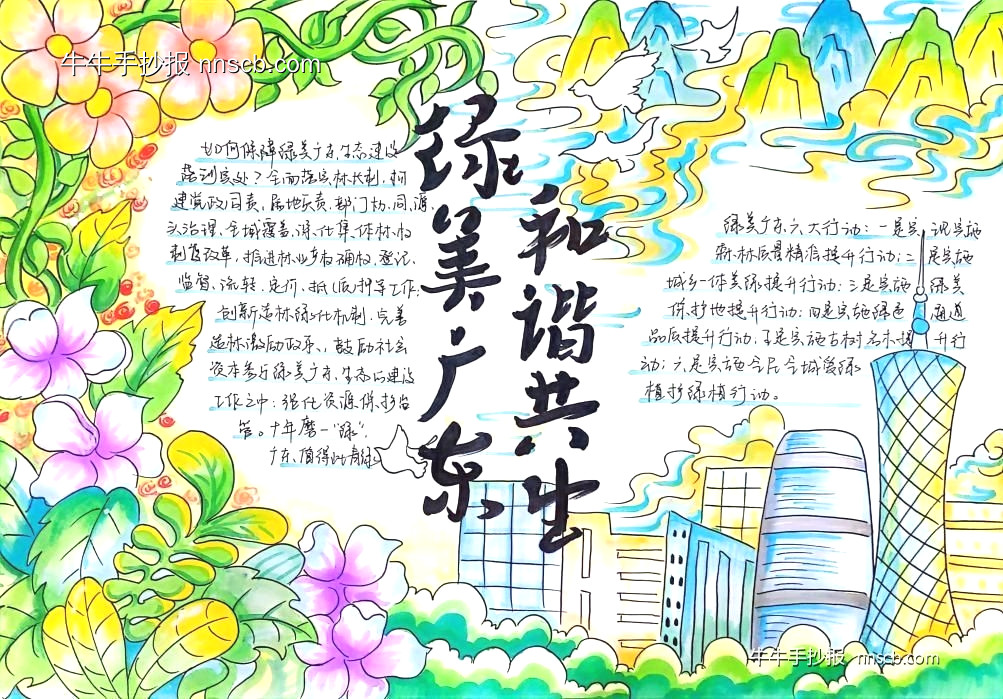 牛牛手抄报 nnscb.com
绿美广东
和谐共生
如何保障绿美广东生态建设
落到实处？全面落实林长制，构
建党政同责，属地负责，部门协同，源
头治理，全域覆盖，深化集体林权
制度改革，推进林业产权确权，登记，
监督，流转，定价，抵(质)押等工作；
创新造林绿化机制，完善
造林激励政策，鼓励社会
资本参与绿美广东生态的建设
工作之中；强化资源保护监
管。十年磨一"绿"，
广东，值得此青绿
绿美广东六大行动：一是实
森林质量精准提升行动；二是实施
城乡一体美绿提升行动；三是实施绿美
保护地提升行动；四是实施绿色通道
品质提升行动；五是实施古树名木提升行
动；六是实施全民全域爱绿
植护绿植行动。
牛牛手抄报 nnscb.com